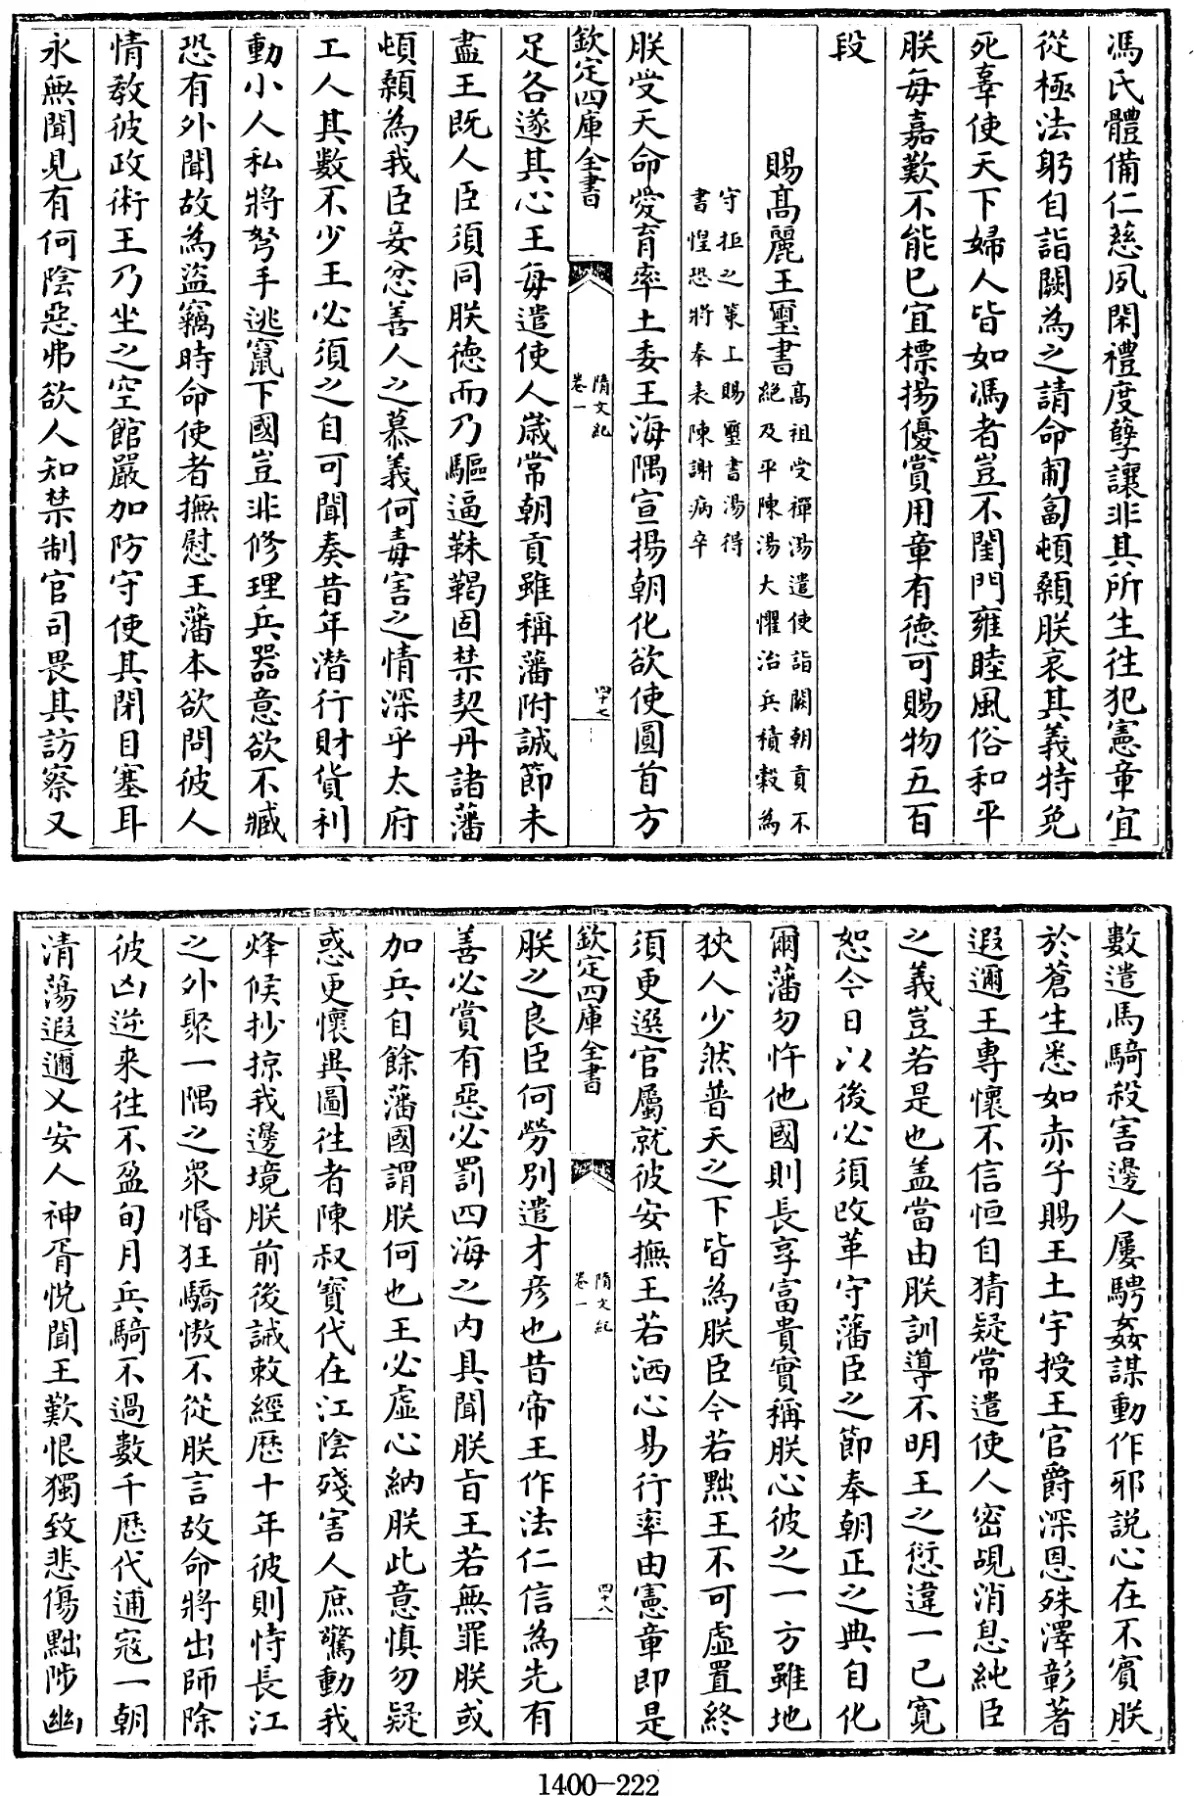 馮氏體備仁慈夙閑禮度孽讓非其所生往犯憲章宜
從極法躬自詣闕為之請命匍匐頓顙朕哀其義特免
死辜使天下婦人皆如馮者豈不閨門雍睦風俗和平
朕每嘉歎不能已宜標揚優賞用章有德可賜物五百
段
賜高麗王璽書
高祖受禪湯遣使詣闕朝貢不
絶及平陳湯大懼治兵積穀為
守拒之策上賜璽書湯得
書惶恐將奉表陳謝病卒
朕受天命愛育率土委王海隅宣揚朝化欲使圓首方
欽定四庫全書
隋文紀
卷一
四十七
足各遂其心王每遣使人歲常朝貢雖稱藩附誠節未
盡王既人臣須同朕德而乃驅逼靺鞨固禁契丹諸藩
頓顙為我臣妾忿善人之慕義何毒害之情深乎太府
工人其數不少王必須之自可聞奏昔年潛行財貨利
動小人私將弩手逃竄下國豈非修理兵器意欲不臧
恐有外聞故為盜竊時命使者撫慰王藩本欲問彼人
情教彼政術王乃坐之空館嚴加防守使其閉目塞耳
永無聞見有何陰惡弗欲人知禁制官司畏其訪察又
數遣馬騎殺害邊人屢騁姦謀動作邪說心在不賓朕
於蒼生悉如赤子賜王土宇授王官爵深恩殊澤彰著
遐邇王專懷不信恒自猜疑常遣使人密覘消息純臣
之義豈若是也盖當由朕訓導不明王之愆違一已寬
恕今日以後必須改革守藩臣之節奉朝正之典自化
爾藩勿忤他國則長享富貴實稱朕心彼之一方雖地
狹人少然普天之下皆為朕臣今若黜王不可虛置終
須更選官屬就彼安撫王若洒心易行率由憲章即是
欽定四庫全書
隋文紀
卷一
四十八
朕之良臣何勞別遣才彦也昔帝王作法仁信為先有
善必賞有惡必罰四海之内具聞朕旨王若無罪朕或
加兵自餘藩國謂朕何也王必虛心納朕此意慎勿疑
惑更懷異圖往者陳叔寶代在江陰殘害人庶驚動我
烽候抄掠我邊境朕前後誡敕經歷十年彼則恃長江
之外聚一隅之衆惛狂驕慠不從朕言故命將出師除
彼凶逆来往不盈旬月兵騎不過數千歷代逋寇一朝
清蕩遐邇乂安人神胥悅聞王歎恨獨致悲傷黜陟幽
1400-222